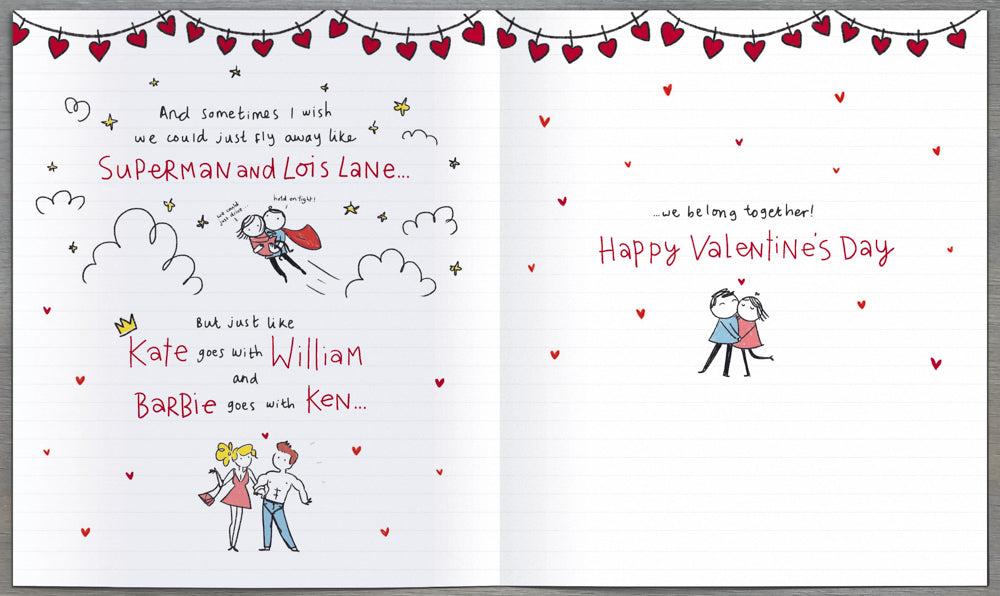 And sometimes I wish
we could just fly away like
SUPERMAN and LOIS LANE...
we could
just drive...
hold on tight!
But just like
Kate goes with William
and
BARBie goes with KEN...
...we belong together!
Happy Valentine's Day